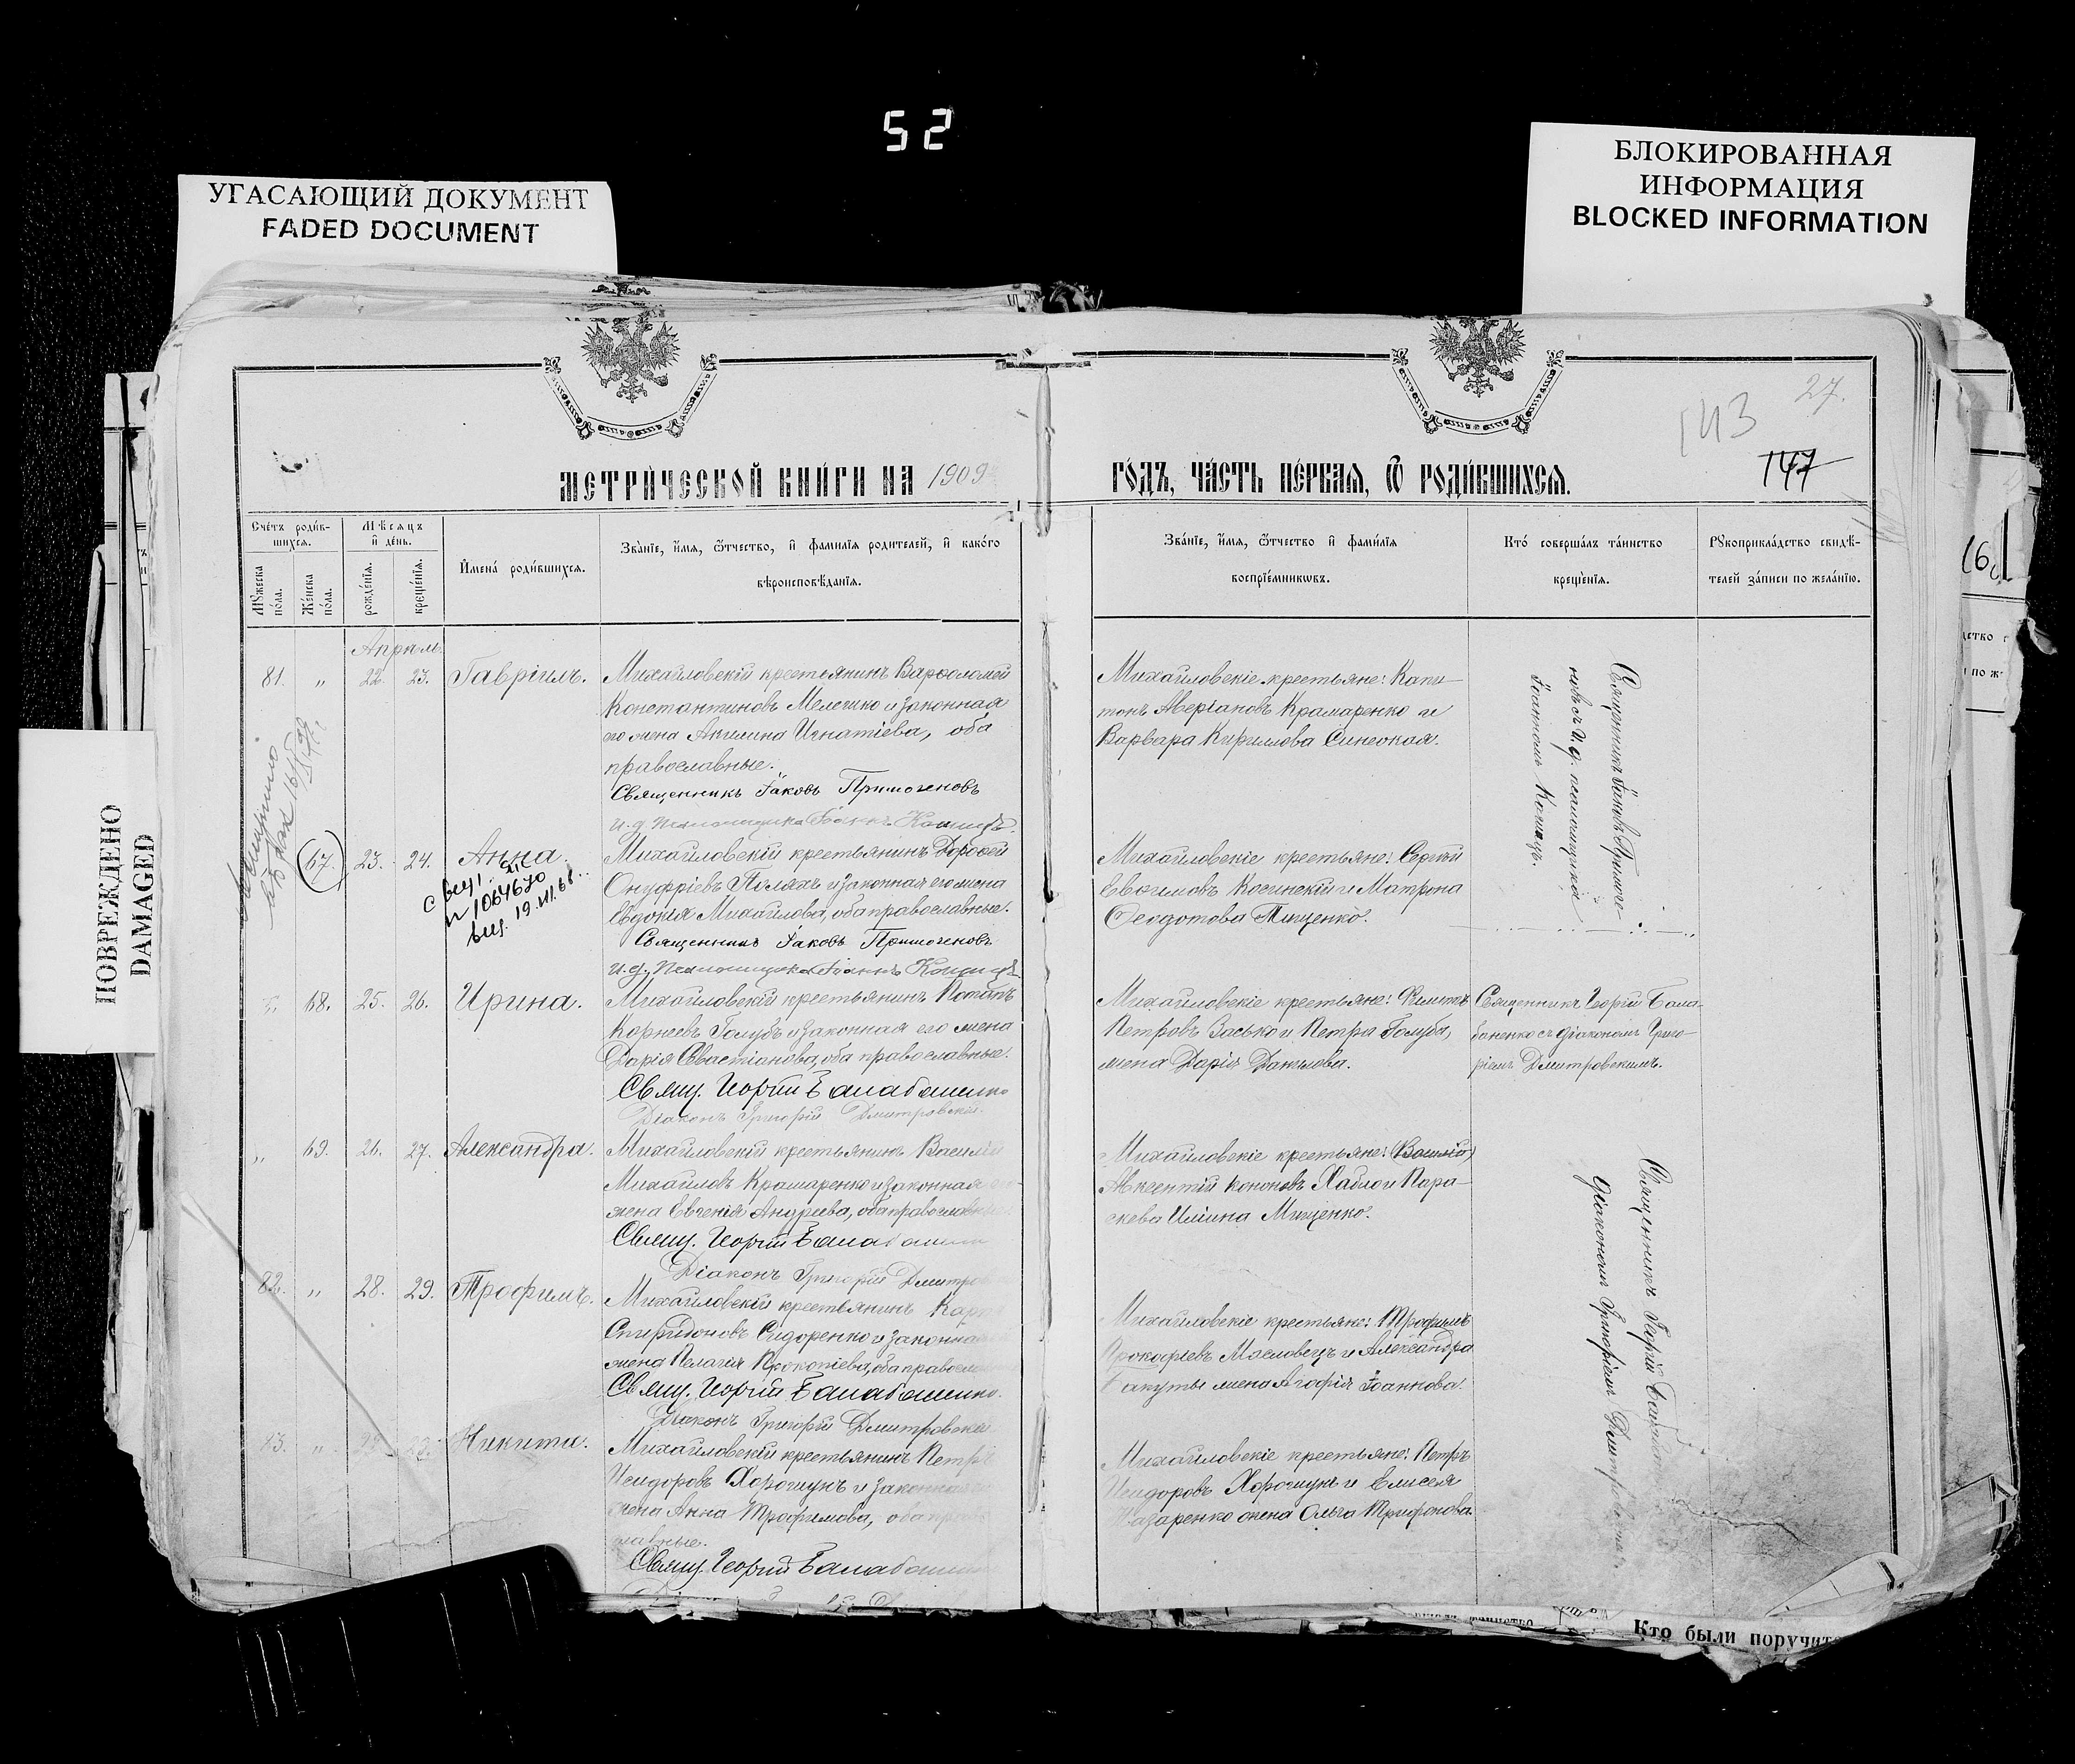 52
УГАСАЮЩИЙ ДОКУМЕНТ
FADED DOCUMENT
БЛОКИРОВАННАЯ
ИНФОРМАЦИЯ
BLOCKED INFORMATION
ПОВРЕЖДЕНО
DAMAGED
27.
143
147
МЕТРИ́ЧЕСКОЙ КНИ́ГИ НА 1909
ГО́ДЪ, ЧА́СТЬ ПЕ́РВАЯ, Ѿ РОДИ́ВШИХСЯ.
Счétъ роди́в-
шихся.
Мѣсяцъ
и де́нь.
Мꙋжеска по́ла.
Же́нска по́ла.
рожде́нїя.
креще́нїя.
И҆мена́ роди́вшихся.
Зва́нїе, и҆́мя, ѻ҆́тчество, и҆ фами́лїя роди́телей, и҆ како́го
вѣроисповѣ́данїя.
Зва́нїе, и҆́мя, ѻ҆́тчество и҆ фами́лїя
воспрїе́мниковъ.
Кто́ соверша́лъ та́инство
креще́нїя.
Рꙋкоприкла́дство свидѣ́-
телей за́писи по жела́нїю.
Апрѣль.
81. " 22. 23. Гавріилъ.
Михайловскій крестьянинъ Варѳоломей
Константиновъ Мелешко и законная
его жена Акилина Игнатіева, оба
православные.
Священникъ Іаковъ Примогеновъ
и.д. псаломщика Іоаннъ Кошицъ.
Михайловскіе крестьяне: Капи-
тонъ Аверіановъ Крамаренко и
Варвара Кириллова Синеокая.
Священникъ Іаковъ Примоге-
новъ съ и.д. псаломщика
Іоанномъ Кошицъ.
67. 23. 24. Анна.
с вещ1. XI
н 1064670
выд. 19.VII.68.
Михайловскій крестьянинъ Дороѳей
Онуфріевъ Поляхъ и законная его жена
Евдокія Михайлова, оба православные.
Священникъ Іаковъ Примогеновъ
и.д. псаломщика Іоаннъ Кошицъ
Михайловскіе крестьяне: Сергій
Евѳимовъ Косинскій и Матрона
Ѳеодотова Тищенко.
" 68. 25. 26. Ирина.
Михайловскій крестьянинъ Потапъ
Корнеевъ Голубъ и законная его жена
Дарія Севастіанова, оба православные.
Свящ. Георгій Балабаненко
Діаконъ Григорій Дмитровскій.
Михайловскіе крестьяне: Филиппъ
Петровъ Васько и Петра Голуба,
жена Дарія Данилова.
Священникъ Георгій Бала-
баненко съ діакономъ Григо-
ріемъ Дмитровскимъ.
" 69. 26. 27. Александра.
Михайловскій крестьянинъ Василій
Михайловъ Крамаренко и законная его
жена Евгенія Андреева, оба православные.
Свящ. Георгій Балабаненко
Діаконъ Григорій Дмитров
Михайловскіе крестьяне: (Василій)
Авксентій Кононовъ Хабло и Пара-
скева Иліина Мищенко.
Священникъ Георгій Балабан
діакономъ Григоріемъ Дмитровскимъ.
82. " 28. 29. Трофимъ.
Михайловскій крестьянинъ Карп
Спиридоновъ Сидоренко и законная
жена Пелагія Прокопіева, оба православ
Свящ. Георгій Балабаненко.
Діаконъ Григорій Дмитровскій
Михайловскіе крестьяне: Трофимъ
Прокофіевъ Масловецъ и Александра
Бакуты жена Агафія Іоаннова.
83. " 29. Никита.
Михайловскій крестьянинъ Петръ
Исидоровъ Хорошунъ и законная
жена Анна Трофимова, оба право
славные.
Свящ. Георгій Балабаненко
Михайловскіе крестьяне: Петръ
Исидоровъ Хорошунъ и Елисея
Назаренко жена Ольга Трифонова.
Кто были поручит